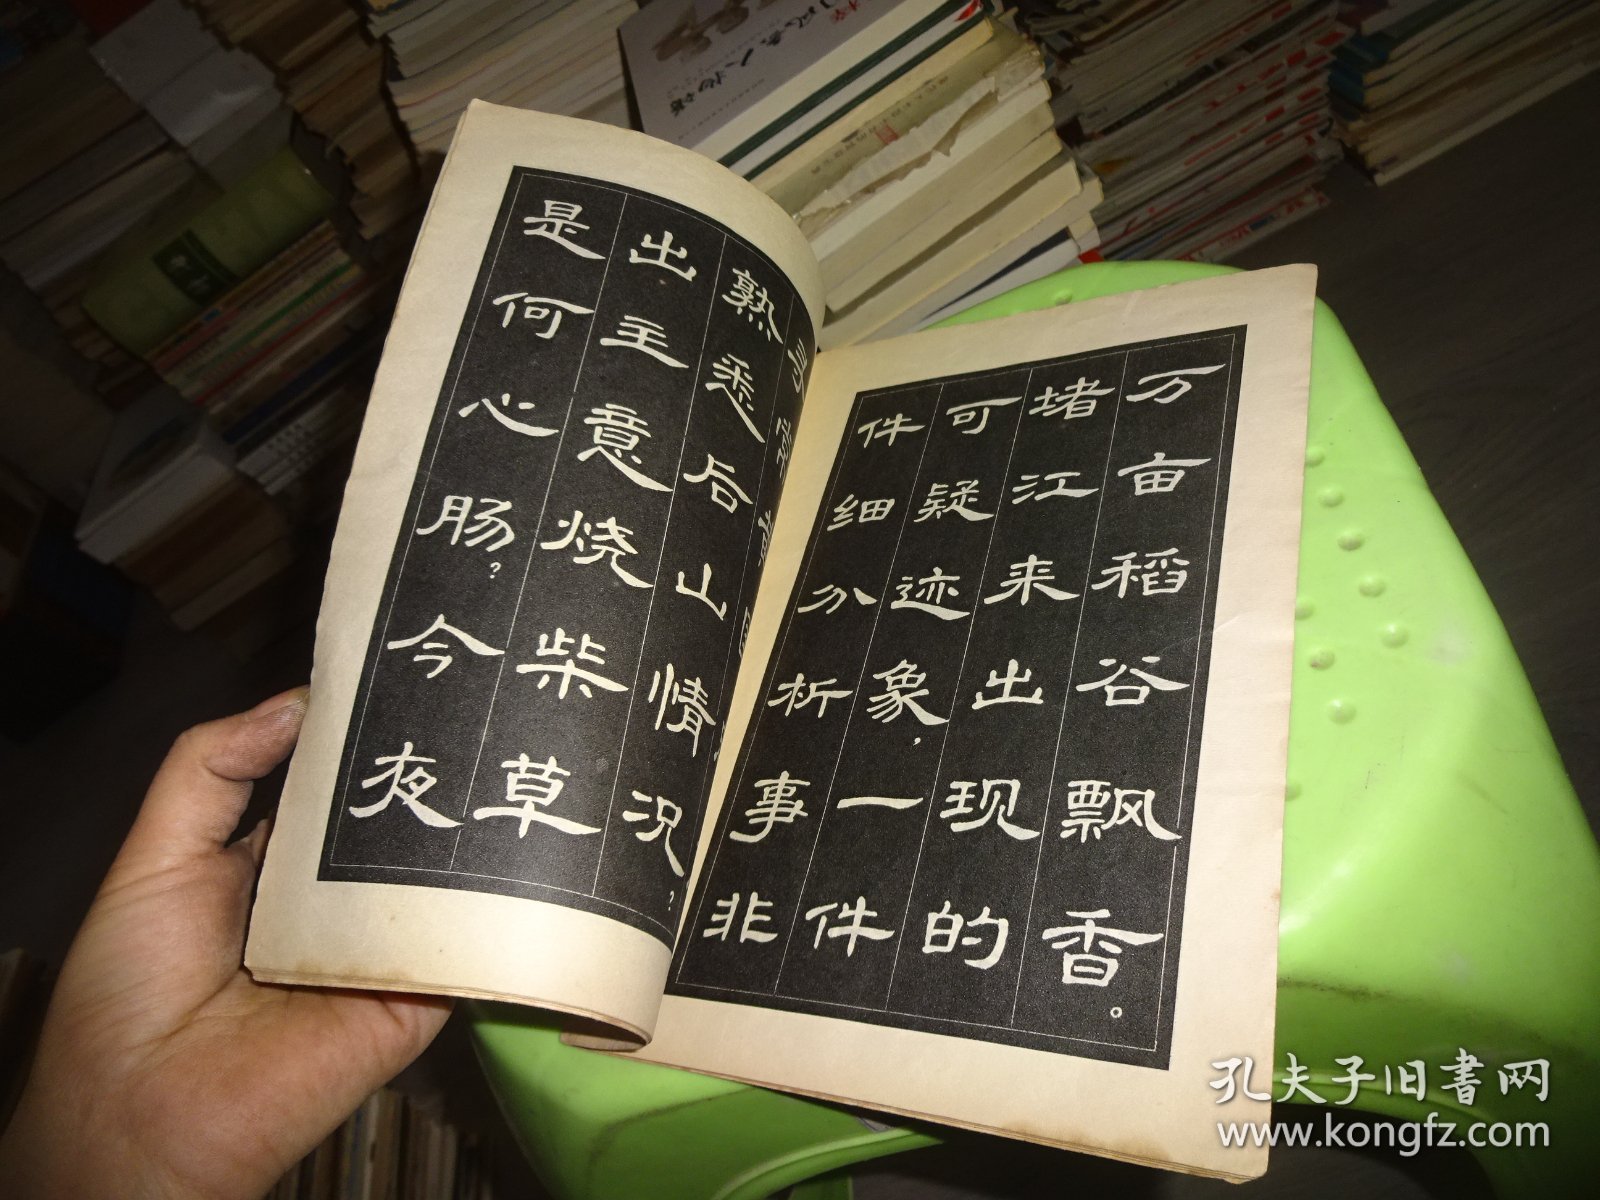 万亩稻谷飘香。
堵江来出现的
可疑迹象，一件
件细分析事非
寻常
熟悉后山情况？
出主意烧柴草
是何心肠？今夜
孔夫子旧书网
www.kongfz.com